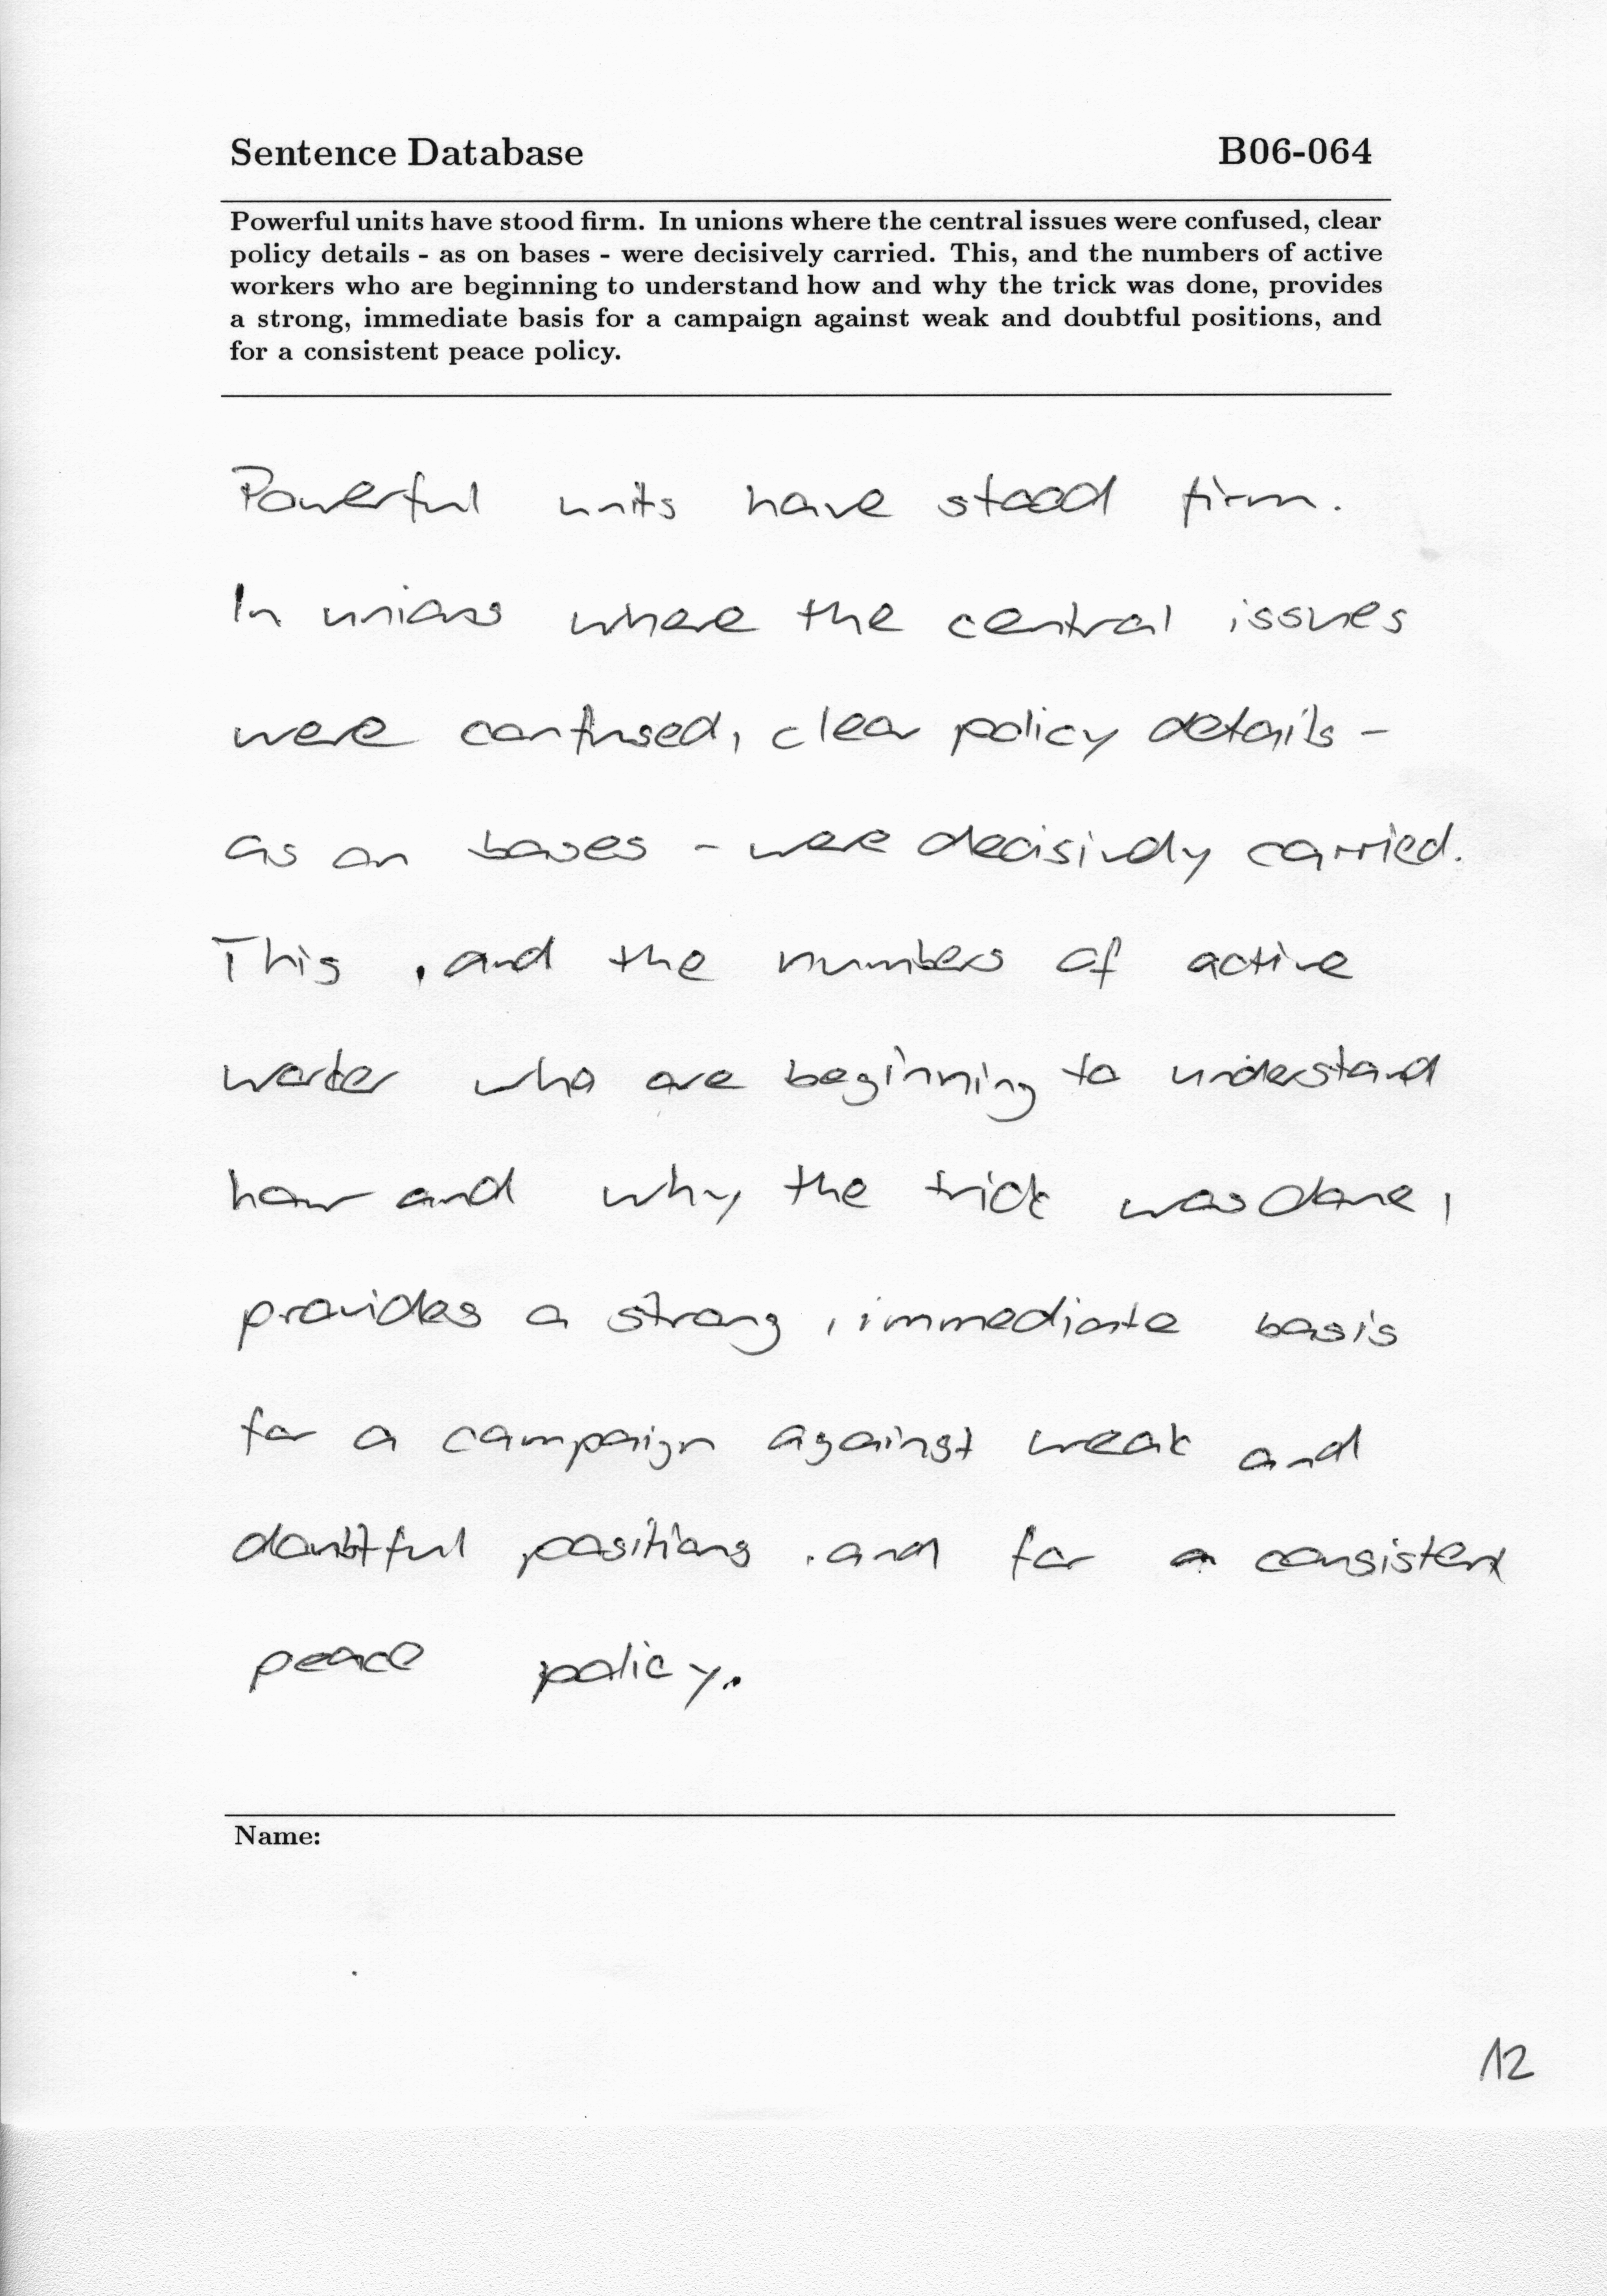 Sentence Database B06-064
Powerful units have stood firm. In unions where the central issues were confused, clear
policy details - as on bases - were decisively carried. This, and the numbers of active
workers who are beginning to understand how and why the trick was done, provides
a strong, immediate basis for a campaign against weak and doubtful positions, and
for a consistent peace policy.
Powerful units have stood firm.
In unions where the central issues
were confused, clear policy details -
as on bases - were decisively carried.
This , and the numbers of active
worker who are beginning to understand
how and why the trick was done,
provides a strong , immediate basis
for a campaign against weak and
doubtful positions , and for a consistent
peace policy.
Name:
12